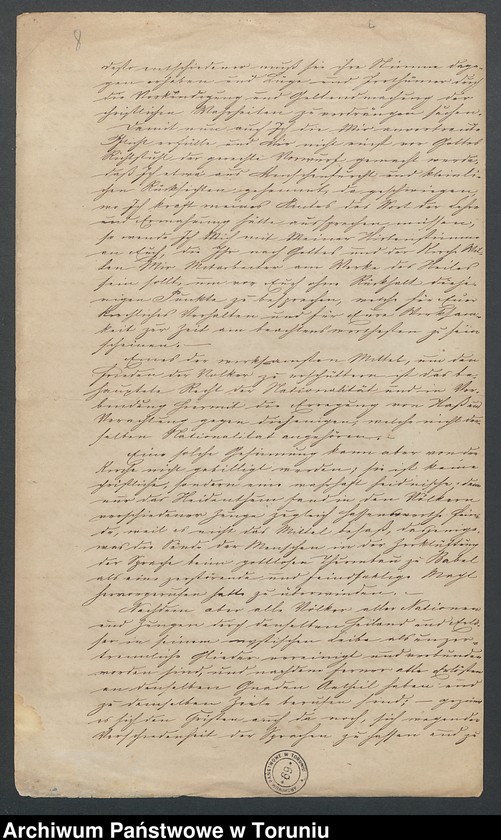 8
desto entschiedener muß sie ihre Stimme dage-
gen erheben und Lüge und Irrthümer durch
die Verkündigung und Geltendmachung der
christlichen Wahrheiten zu verdrängen suchen.
Damit nun auch Ich die Mir anvertraute
Pflicht erfülle und Mir nicht einst vor Gottes
Richtstuhl der gerechte Vorwurf gemacht werde,
daß Ich etwa aus Menschenfurcht und kleinli-
chen Rücksichten geschwiegen,
wo Ich kraft meines Amtes das Wort der Lehre
und Ermahnung hätte aussprechen müssen,
so wende Ich Mich mit Meiner Hirtenstimme
an Euch, die Ihr nach Gottes und der Kirche Wil-
len Mir Mitarbeiter am Werke des Heiles
sein sollt, um vor Euch ohne Rückhalt dieje-
nigen Punkte zu besprechen, welche für Euer
kirchliches Verhalten und für Eure Wirksam-
keit zur Zeit am beachtenswerthesten zu sein
scheinen. –
Eines der wirksamsten Mittel, um den
Frieden der Völker zu erschüttern ist das be-
hauptete Recht der Nationalität und in Ver-
bindung hiermit die Erregung von Haß und
Verachtung gegen diejenigen, welche nicht der-
selben Nationalität angehören. –
Eine solche Gesinnung kann aber von der
Kirche nicht gebilligt werden; sie ist keine
christliche, sondern eine wahrhaft heidnische; denn
nur das Heidenthum fand in den Völkern
verschiedener Zunge zugleich hassenswerthe Fein-
de, weil es nicht das Mittel besaß, dasjenige
was die Sünde der Menschen in der Zerklüftung
der Sprache beim Thurmbau zu Babel
als eine zerstörende und feindselige Macht
hervorgerufen hatte zu überwinden. –
Nachdem aber alle Völker aller Nationen
und Zungen durch denselben Heiland und Erlö-
ser in seinem mystischen Leibe als unzer-
trennliche Glieder vereinigt und verbunden
worden sind, und nachdem ferner alle Christen
an denselben Gnaden Antheil haben und
zu demselben Ziele berufen sind, – geziemt
es sich den Christen auch da noch, sich wegen der
Verschiedenheit der Sprachen zu hassen und zu
ARCHIWUM PAŃSTWOWE W TORUNIU
69
Archiwum Państwowe w Toruniu